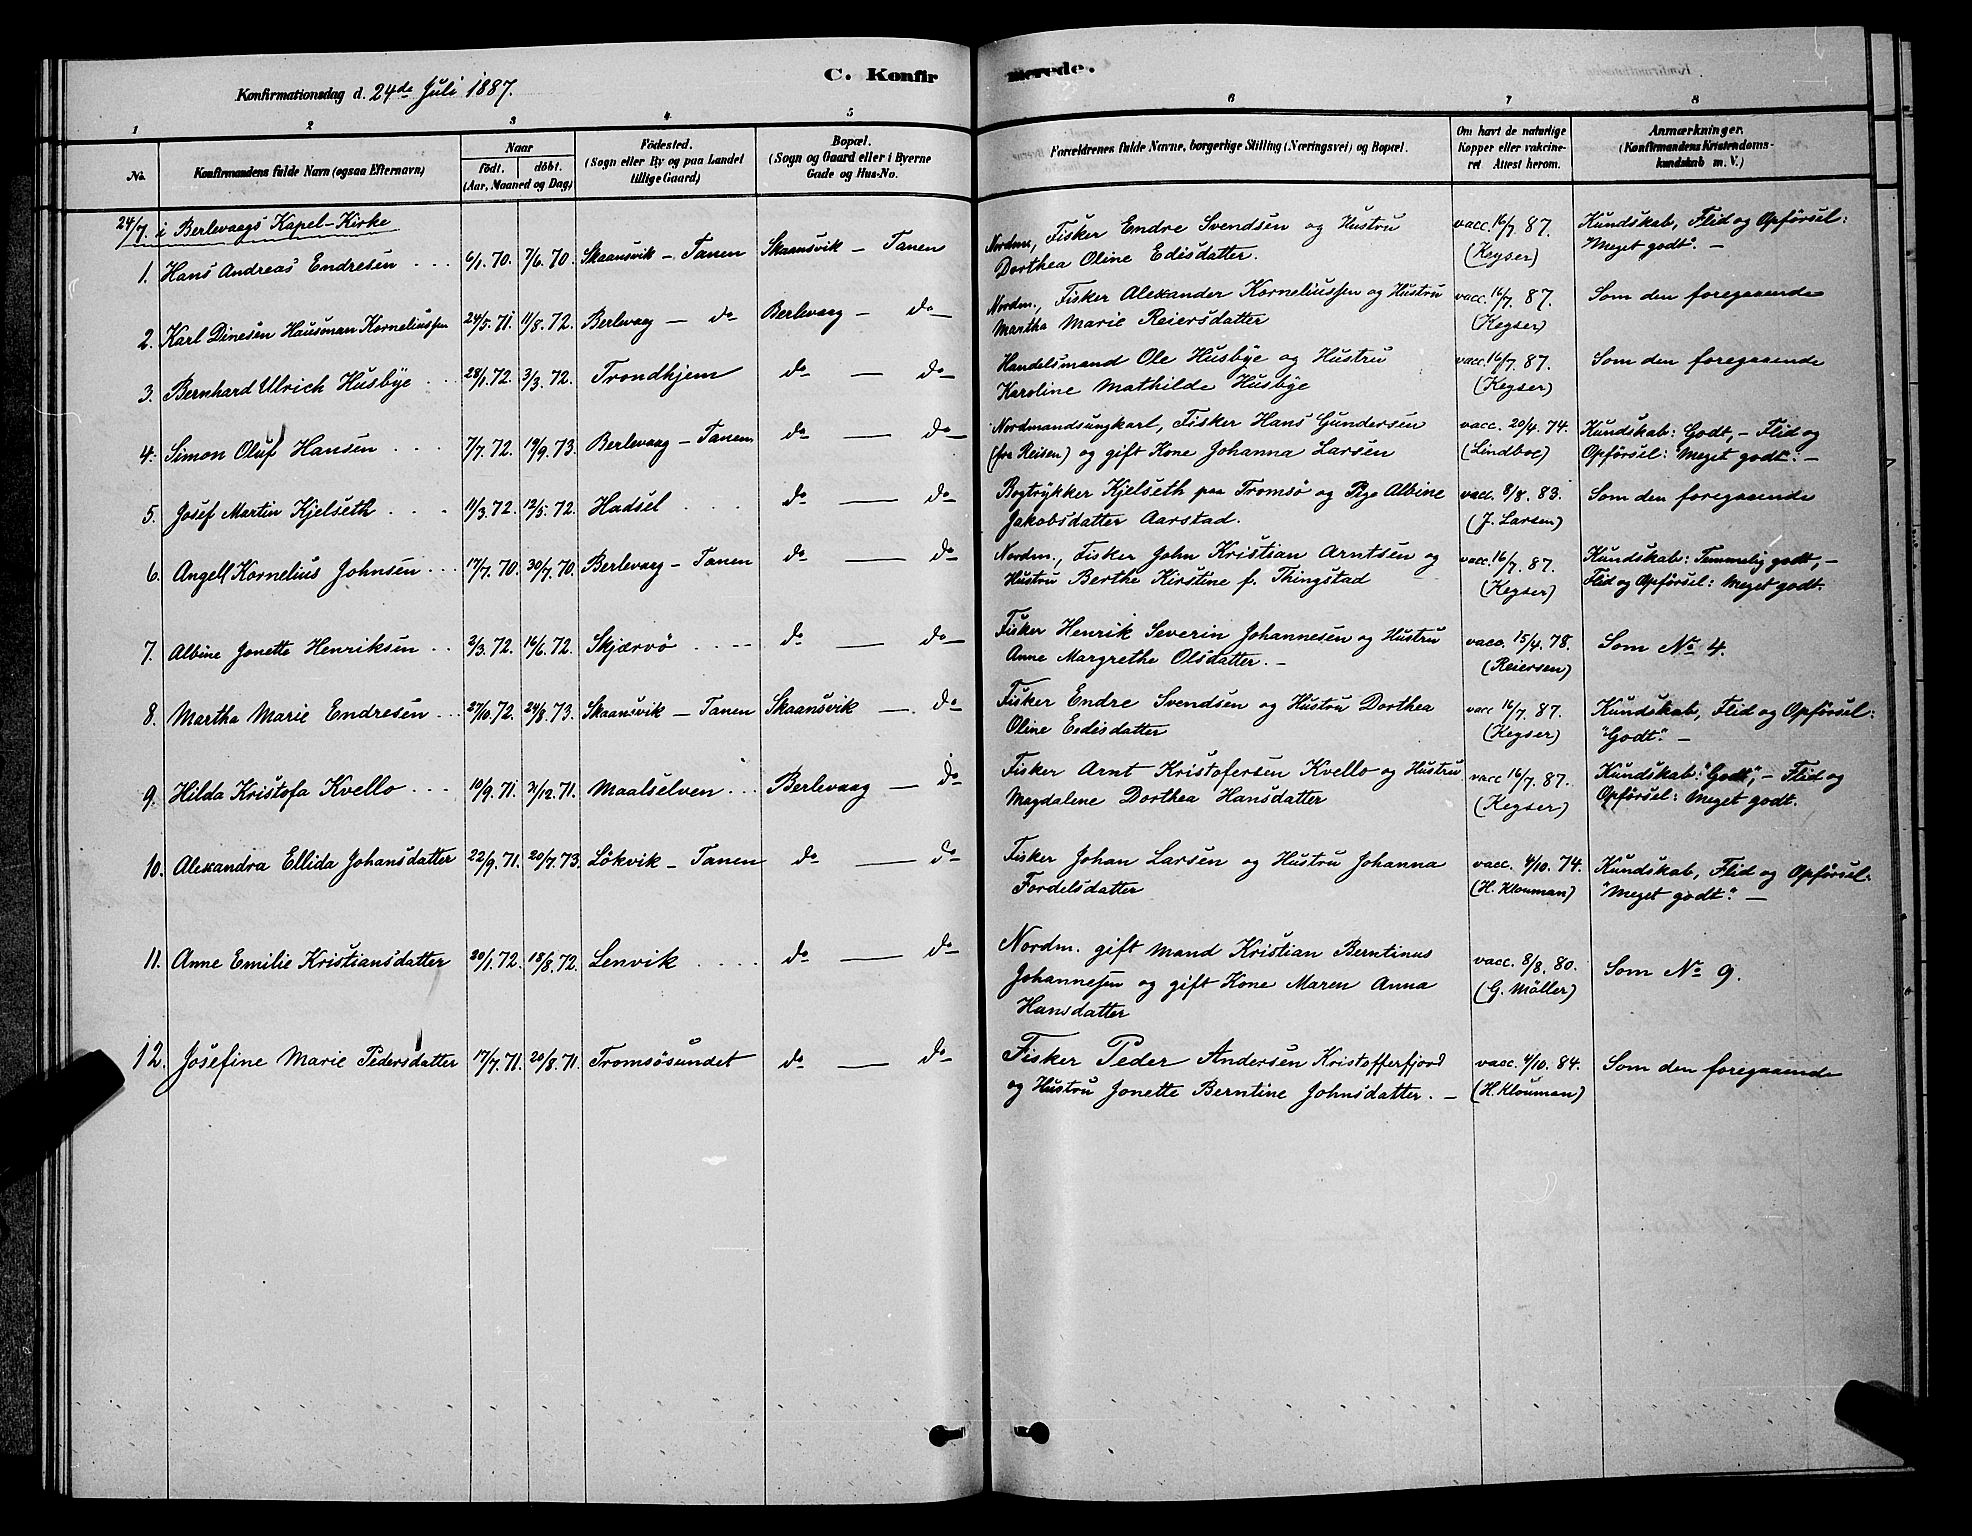 C. Konfir merede.
Konfirmationsdag d. 24de Juli 1887.
1 2 3 4 5 6 7 8
No. Konfirmandens fulde Navn (ogsaa Efternavn) Naar födt. döbt. (Aar, Maaned og Dag) Födested. (Sogn eller By og paa Landet tillige Gaard) Bopæl. (Sogn og Gaard eller i Byerne Gade og Hus-No. Forældrenes fulde Navne, borgerlige Stilling (Næringsvei) og Bopæl. Om havt de naturlige Kopper eller vakcineret Attest herom. Anmærkninger. (Konfirmandens Kristendomskundskab m. V.)
24/7. i Berlevaags Kapel-Kirke
1. Hans Andreas Endresen 6/1.70. 7/6.70. Skaansvik - Tanen Skaansvik - Tanen Nordm., Fisker Endre Svendsen og Hustru vacc. 16/7.87. Kundskab, Flid og Opförsel:
Dorthea Oline Edisdatter. (Keyser) "Meget godt". -
2. Karl Dinesen Hausman Korneliussen 24/5.71. 11/8.72. Berlevaag - do Berlevaag - do Nordm., Fisker Alexander Korneliussen og Hustru vacc. 16/7.87. Som den foregaaende
Martha Marie Reiersdatter (Keyser)
3. Bernhard Ulrich Husbye 28/1.72. 3/3.72. Trondhjem do - do Handelsmand Ole Husbye og Hustru vacc. 16/7.87. Som den foregaaende
Karoline Mathilde Husbye (Keyser)
4. Simon Oluf Hansen 7/7.72. 19/9.73. Berlevaag - Tanen do - do Nordmandsungkarl, Fisker Hans Gundersen vacc. 20/4.74. Kundskab: Godt, - Flid og
(fra Reisen) og gift Kone Johanna Larsen (Lindboe) Opförsel: "Meget godt". -
5. Josef Martin Kjelseth 11/3.72. 12/5.72. Hadsel do - do Bogtrykker Kjelseth paa Tromsö og Pige Albine vacc. 8/8.83. Som den foregaaende
Jakobsdatter Aarstad. (J. Larsen)
6. Angell Kornelius Johnsen 17/7.70. 30/7.70. Berlevaag - Tanen do - do Nordm., Fisker John Kristian Arntsen og vacc. 16/7.87. Kundskab: Temmelig godt, -
Hustru Berthe Kirstine f. Thingstad (Keyser) Flid og Opförsel: Meget godt.
7. Albine Jonette Henriksen 2/3.72. 16/6.72. Skjærvö do - do Fisker Henrik Severin Johannesen og Hustru vacc. 15/4.78. Som No 4.
Anne Margrethe Olsdatter. - (Reiersen)
8. Martha Marie Endresen 27/10.72. 24/8.73. Skaansvik - Tanen Skaansvik - do Fisker Endre Svendsen og Hustru Dorthea vacc 16/7.87. Kundskab, Flid og Opförsel:
Oline Eedisdatter (Keyser) "Godt". -
9. Hilda Kristofa Kvello 10/9.71. 31/12.71. Maalselven Berlevaag - do Fisker Arnt Kristofersen Kvello og Hustru vacc 16/7.87. Kundskab: "Godt", - Flid og
Magdalene Dorthea Hansdatter (Keyser) Opförsel: Meget godt.
10. Alexandra Ellida Johansdatter 22/9.71. 20/7.73. Lökvik - Tanen do - do Fisker Johan Larsen og Hustru Johanna vacc. 4/10.74. Kundskab, Flid og Opförsel:
Fordelsdatter (H. Klouman) "Meget godt". -
11. Anne Emilie Kristiansdatter 20/1.72. 18/8.72. Lenvik do - do Nordm. gift Mand Kristian Berntinus vacc. 8/8.80. Som No 9.
Johannesen og gift Kone Maren Anna (G. Möller)
Hansdatter
12. Josefine Marie Pedersdatter 17/7.71. 20/8.71. Tromsösundet do - do Fisker Peder Andersen Kristofferfjord vacc. 4/10.84. Som den foregaaende
og Hustru Jonette Berntine Johnsdatter. - (H. Klouman)